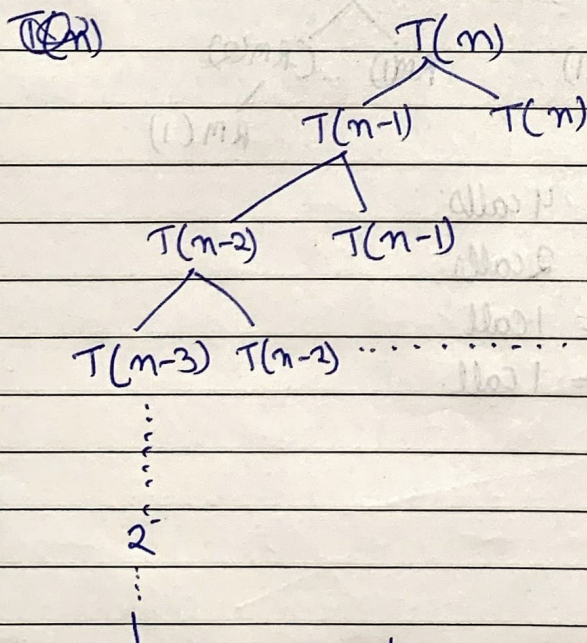 T(n)
T(n-1) T(n)
T(n-2) T(n-1)
T(n-3) T(n-2) ...........
2
1